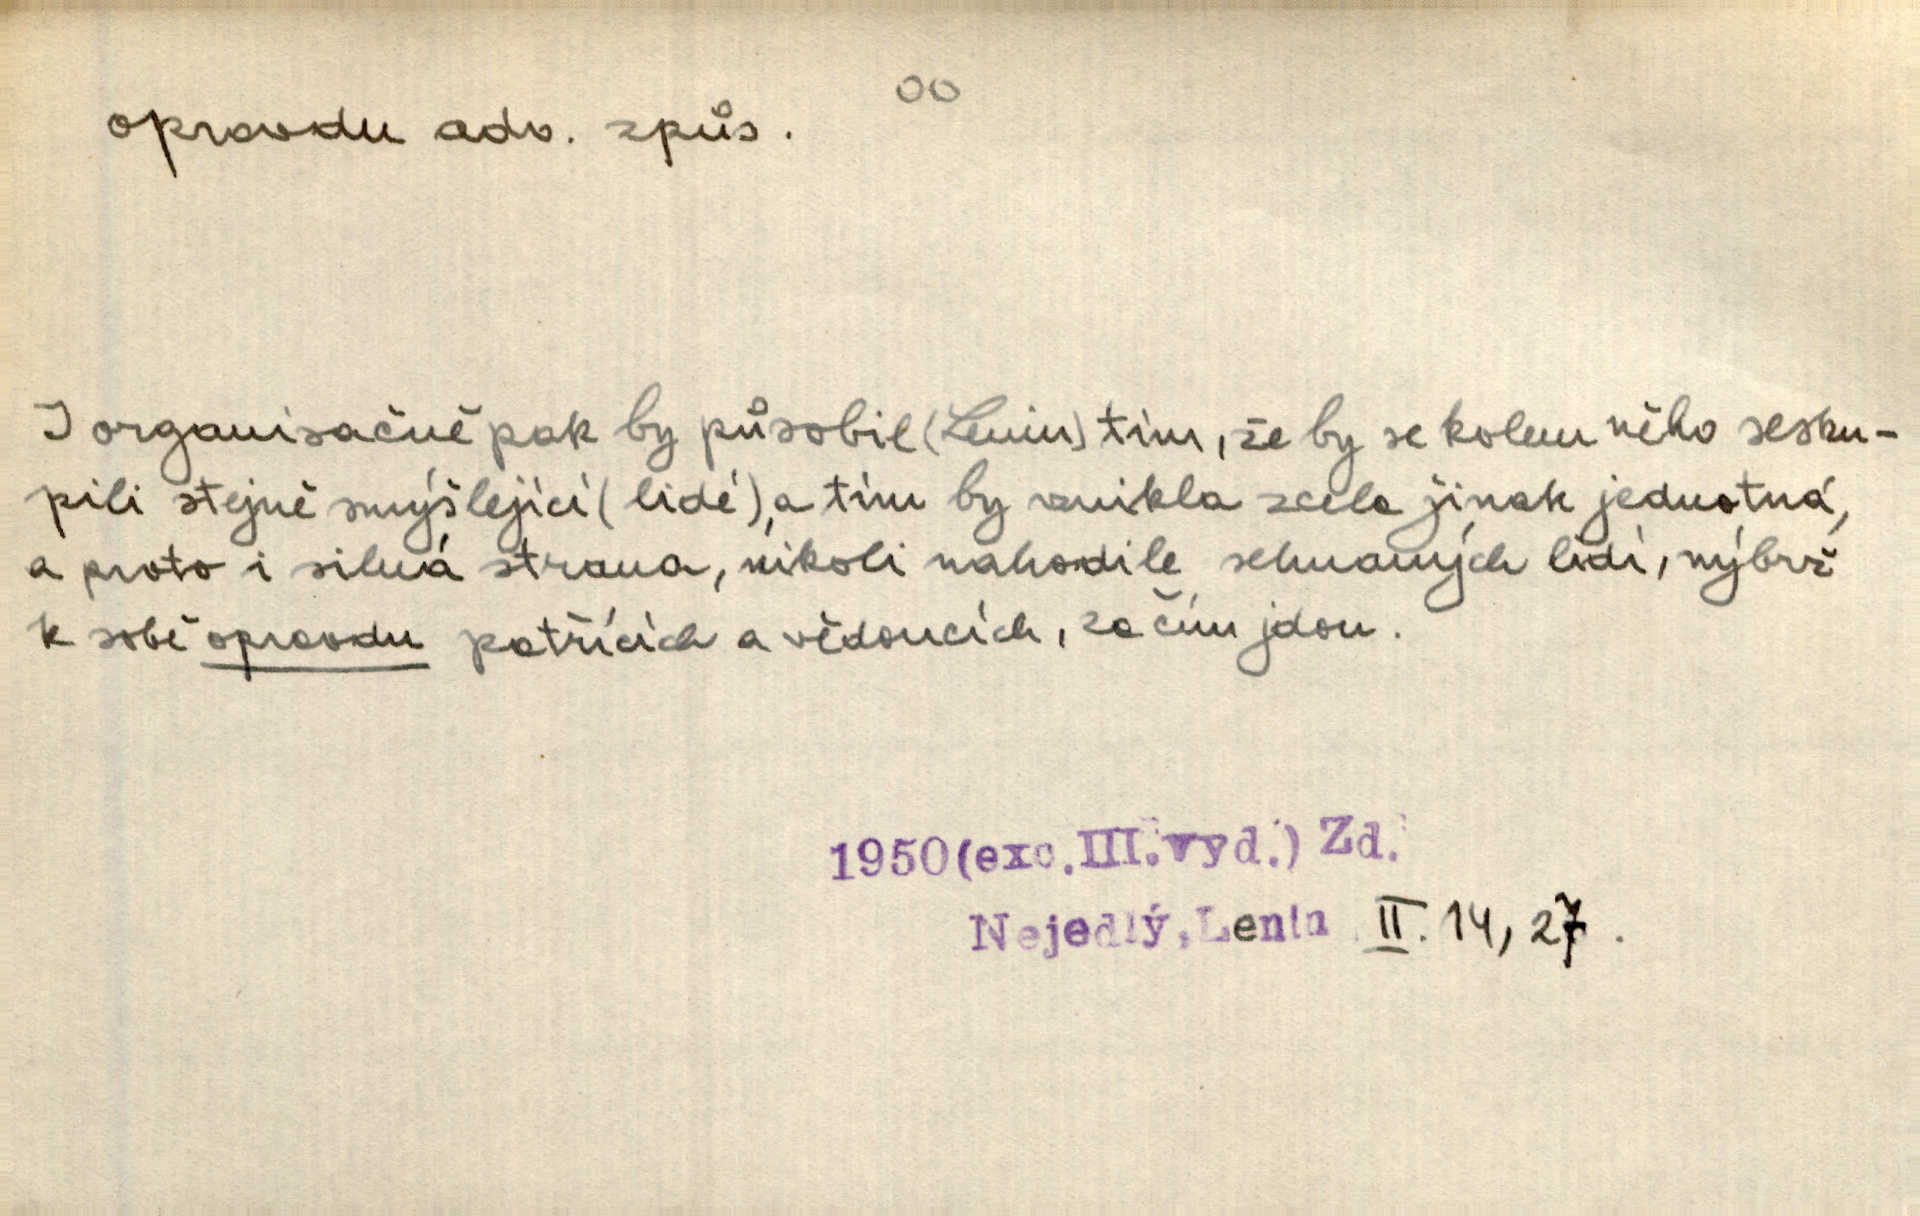 oo
opravdu adv. způs.
I organisačně pak by působil (Lenin) tím, že by se kolem něho sesku-
pili stejně smýšlející (lidé), a tím by vznikla zcela jinak jednotná,
a proto i silná strana, nikoli nahodile sehnaných lidí, nýbrž
k sobě opravdu patřících a vědoucích, za čím jdou.
1950 (exc. III. vyd.) Zd.
Nejedlý, Lenin II. 14, 27.